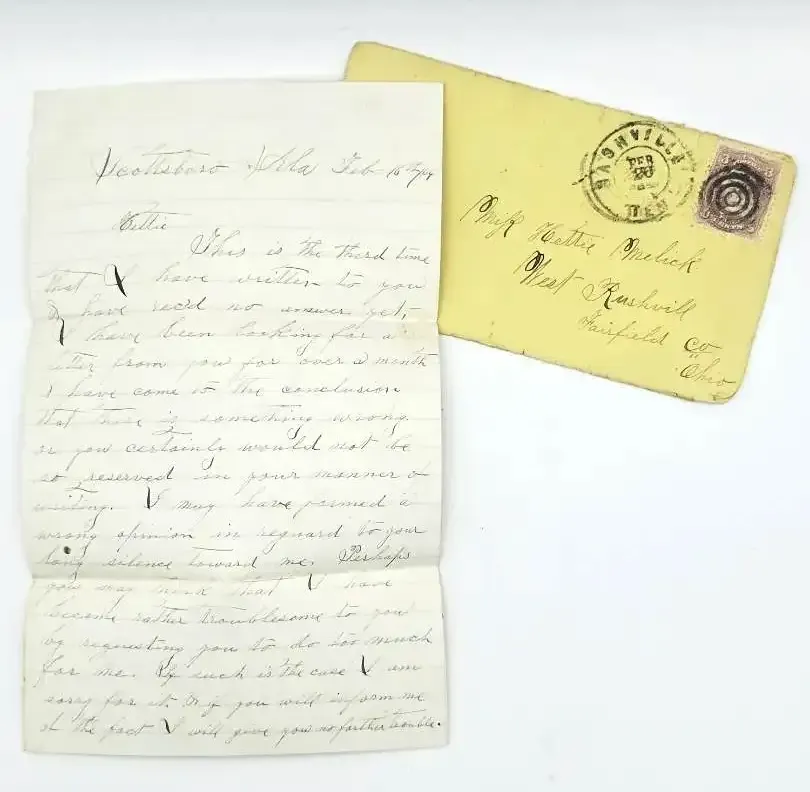 Scottsboro Ala Feb 15th/64
Hettie
This is the third time
that I have written to you
& have rec'd no answer yet,
I have been looking for a
letter from you for over a month
I have come to the conclusion
that there is something wrong
or you certainly would not be
so reserved in your manner of
writing. I may have formed a
wrong opinion in reguard to your
long silence toward me. Perhaps
you may think that I have
become rather troublesome to you
by requesting you to do too much
for me. If such is the case I am
sorry for it. & if you will inform me
of the fact I will give you no farther trouble.
NASHVILLE
FEB
20
TEN
3 3
Miss Hettie Melick
West Rushvill
Fairfield Co
Ohio